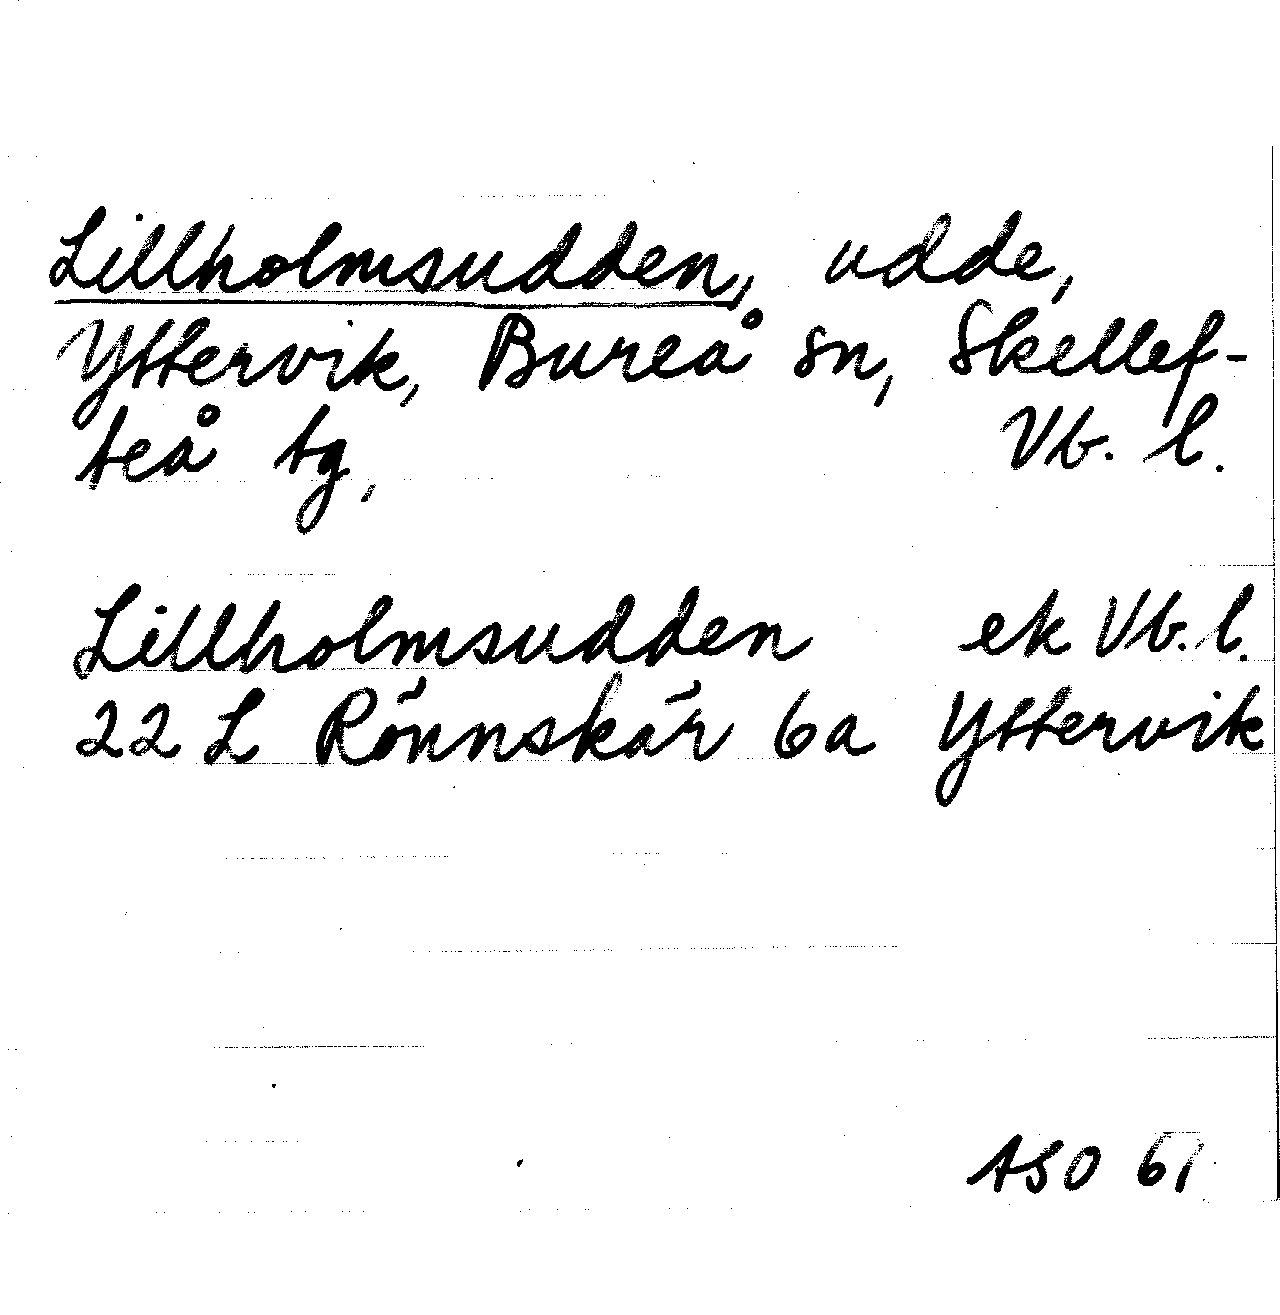 Lillholmsudden, udde,
Yttervik, Bureå sn, Skellef-
teå tg, Vb. l.
Lillholmsudden ek Vb. l.
22 L Rönnskär 6a Yttervik
ASO 67